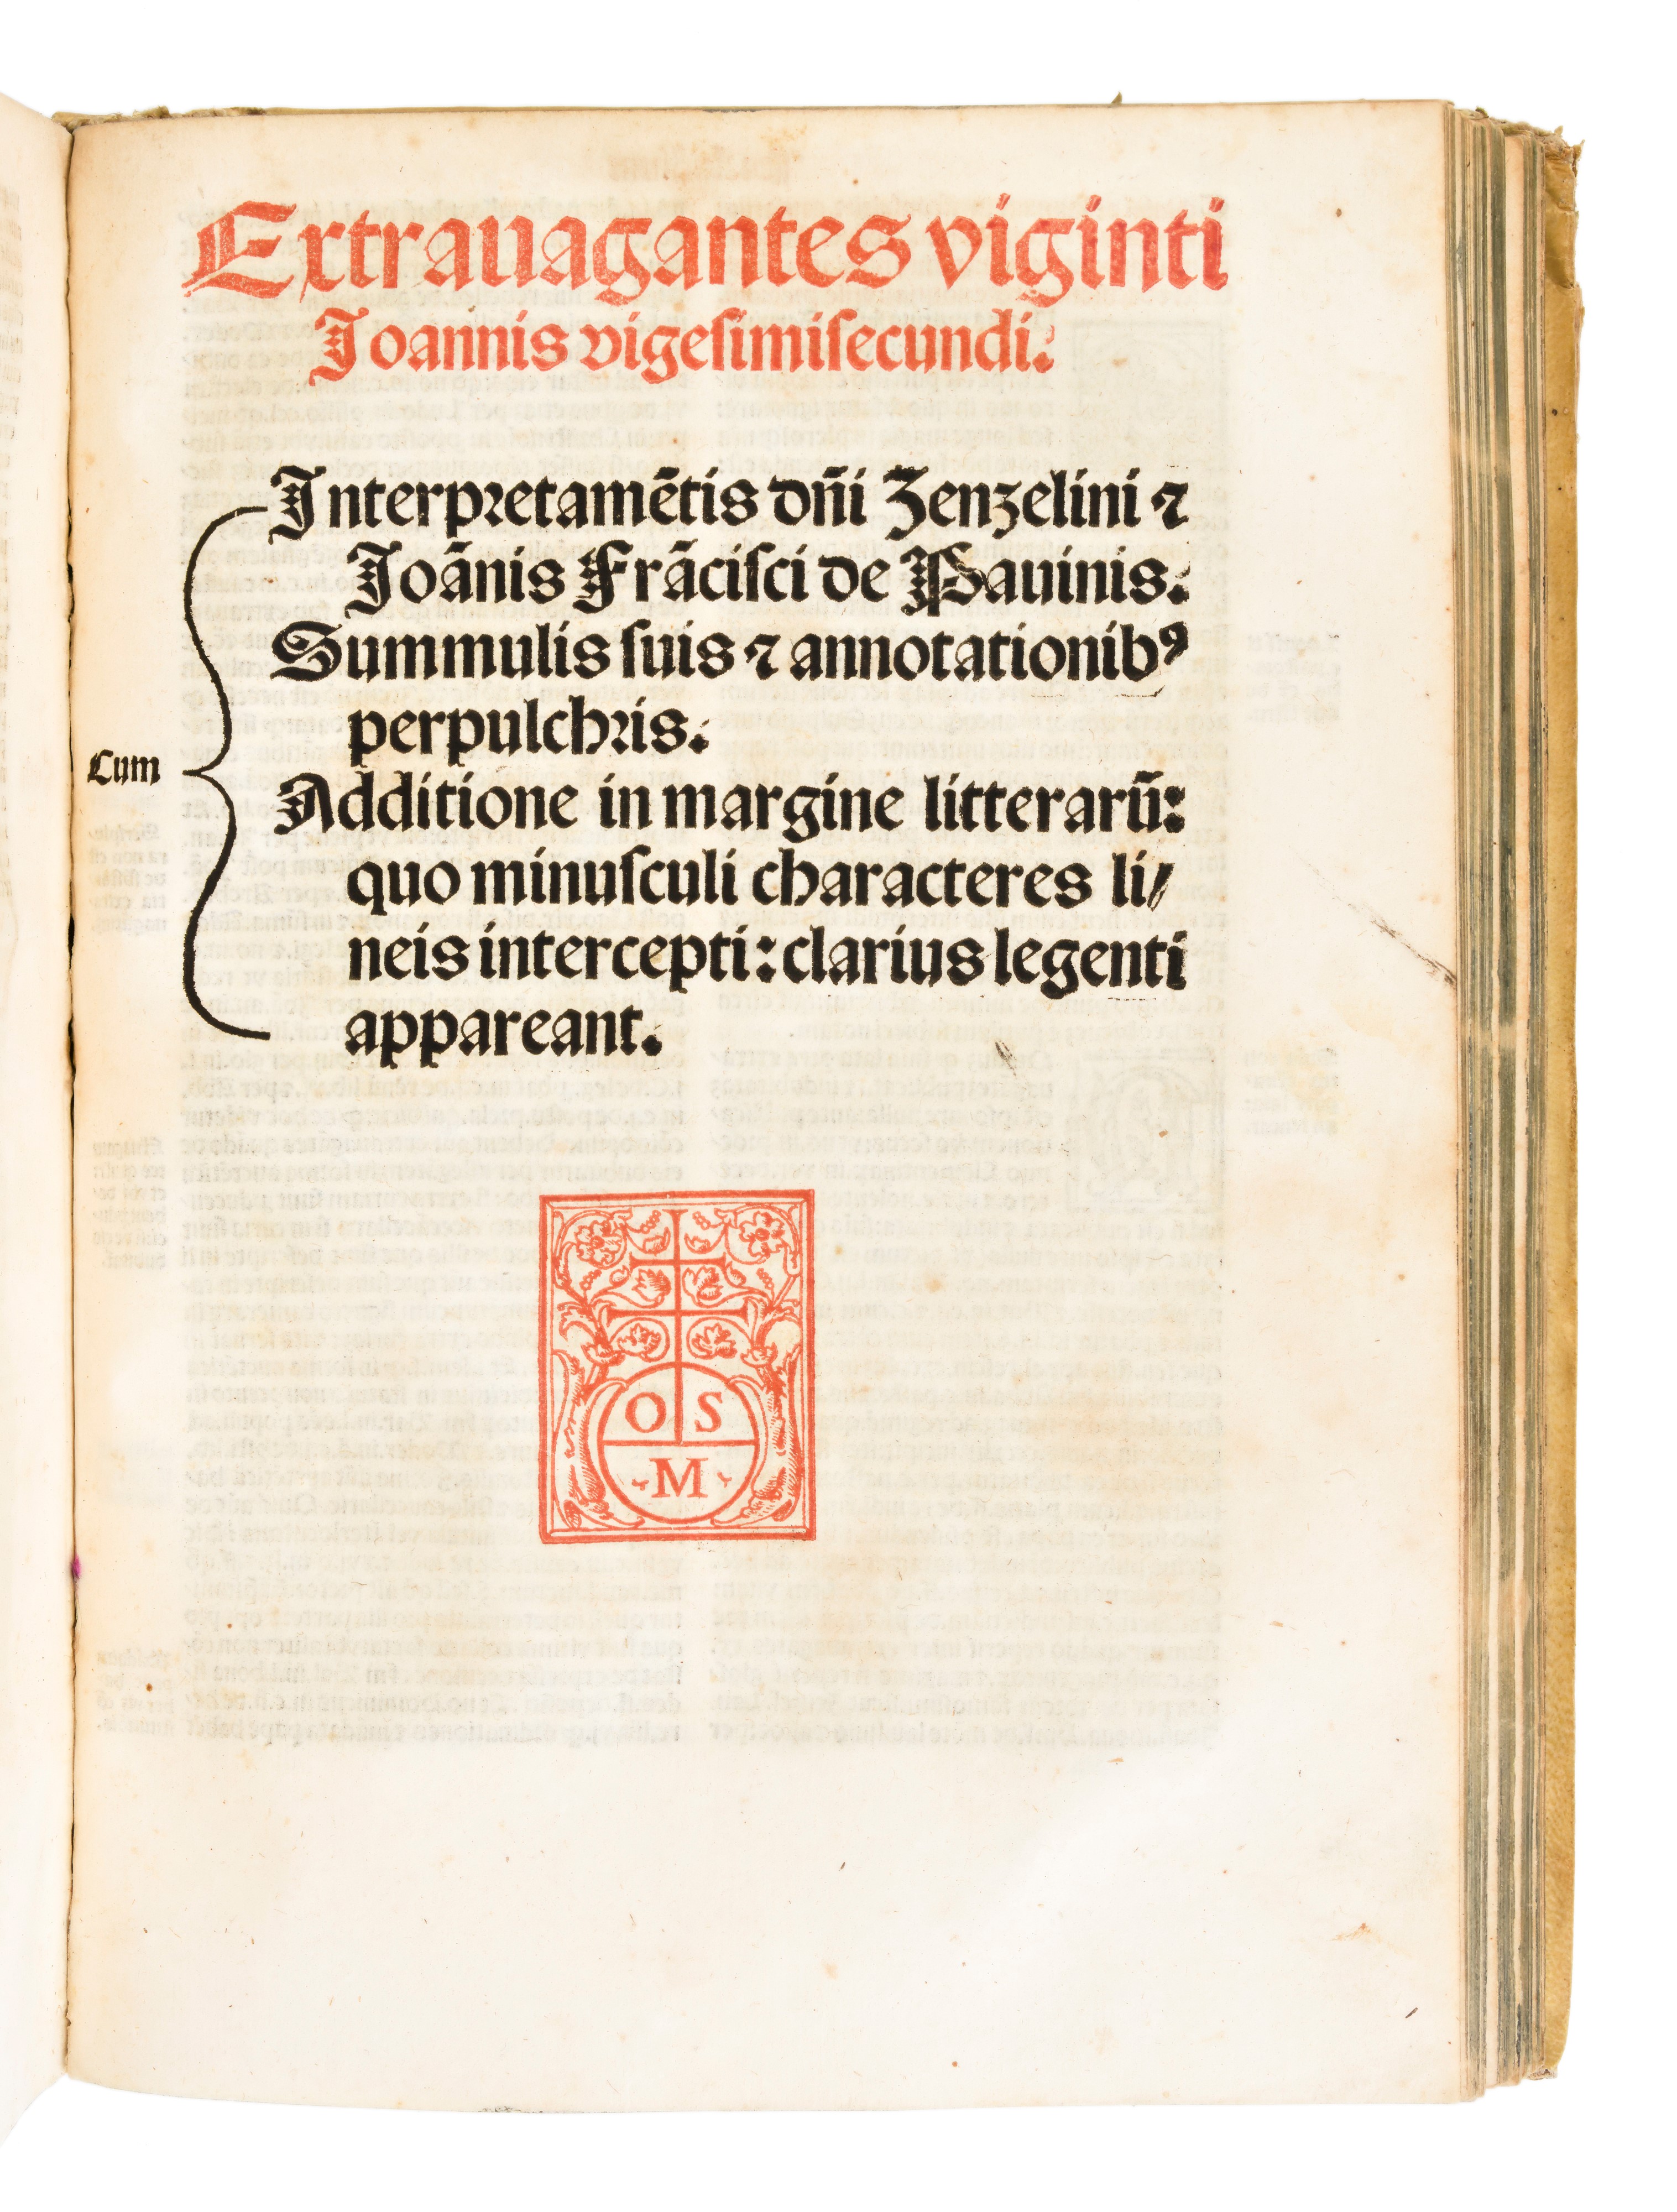 Extrauagantes viginti
Joannis vigeſimiſecundi.
Interpretamētis dn̄i Zenzelini ⁊
Joānis Frāciſci de Pauinis.
Summulis ſuis ⁊ annotationibꝰ
perpulchꝛis.
Cum
Additione in margine litterarū:
quo minuſculi characteres li⸗
neis intercepti: clarius legenti
appareant.
O S
M